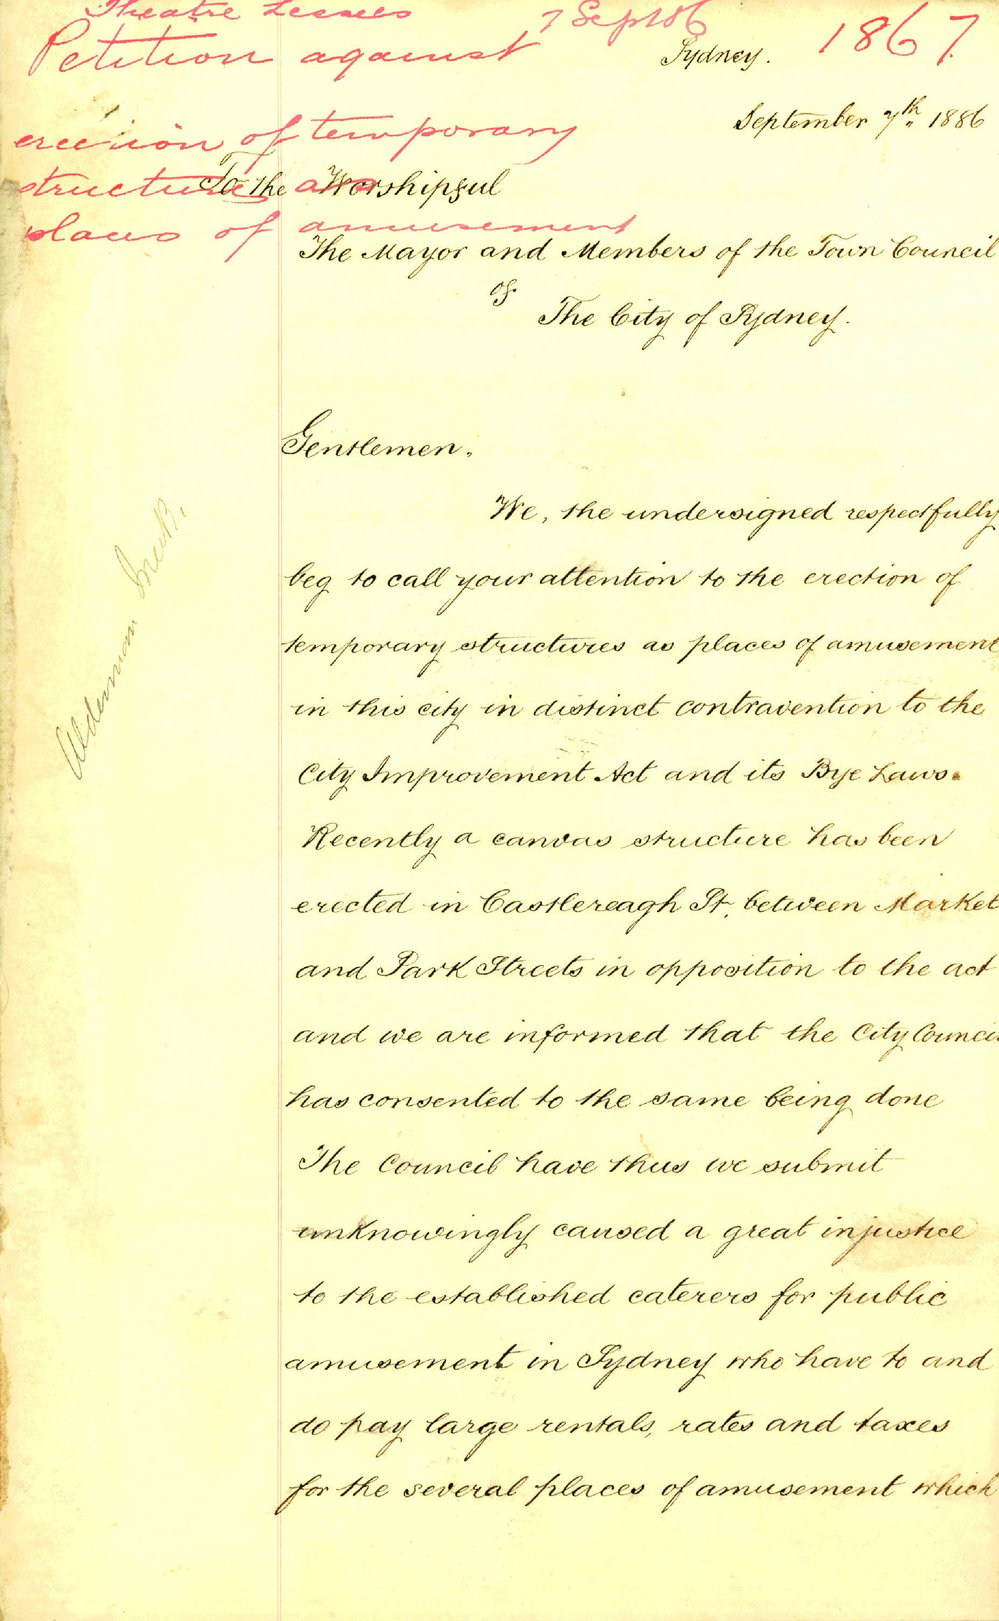 Theatre Lessees 7 Sept 86
Petition against 1867
Sydney.
erection of temporary
September 7th 1886
structures as
To the Worshipful
places of amusement
The Mayor and Members of the Town Council
of
The City of Sydney.
Gentlemen.
We, the undersigned respectfully
beg to call your attention to the erection of
temporary structures as places of amusement
in this city in distinct contravention to the
City Improvement Act and its Bye Laws.
Recently a canvas structure has been
erected in Castlereagh St, between Market
and Park Streets in opposition to the act
and we are informed that the City Council
has consented to the same being done
The Council have thus we submit
unknowingly caused a great injustice
to the established caterers for public
amusement in Sydney who have to and
do pay large rentals, rates and taxes
for the several places of amusement which
Alderman